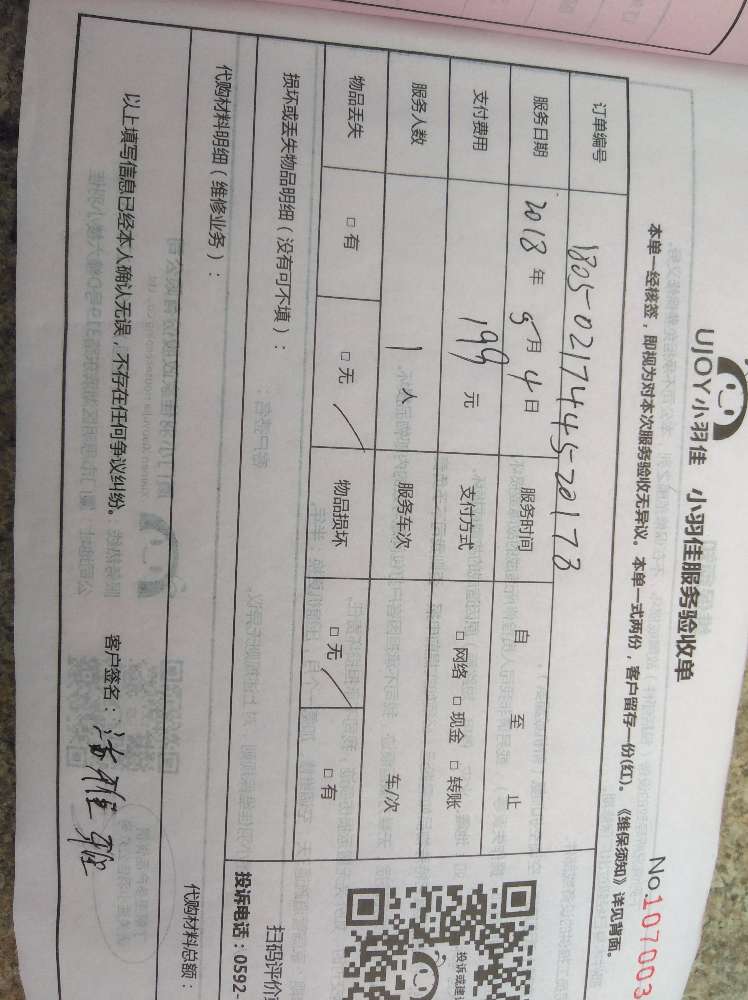 UJOY小羽佳 小羽佳服务验收单
No.107003
本单一经核签，即视为对本次服务验收无异议。本单一式两份，客户留存一份(红)。《维保须知》详见背面。
订单编号 1805-0217445-20173
服务日期 2018年5月4日 服务时间 自 至 止
支付费用 199元 支付方式 □网络 □现金 □转账
服务人数 1人 服务车次 车/次
物品丢失 □有 □无 物品损坏 □无 □有
损坏或丢失物品明细（没有可不填）：
代购材料明细（维修业务）：
代购材料总额：
以上填写信息已经本人确认无误，不存在任何争议纠纷。 客户签名：
投诉或建议
扫码评价
投诉电话：0592-